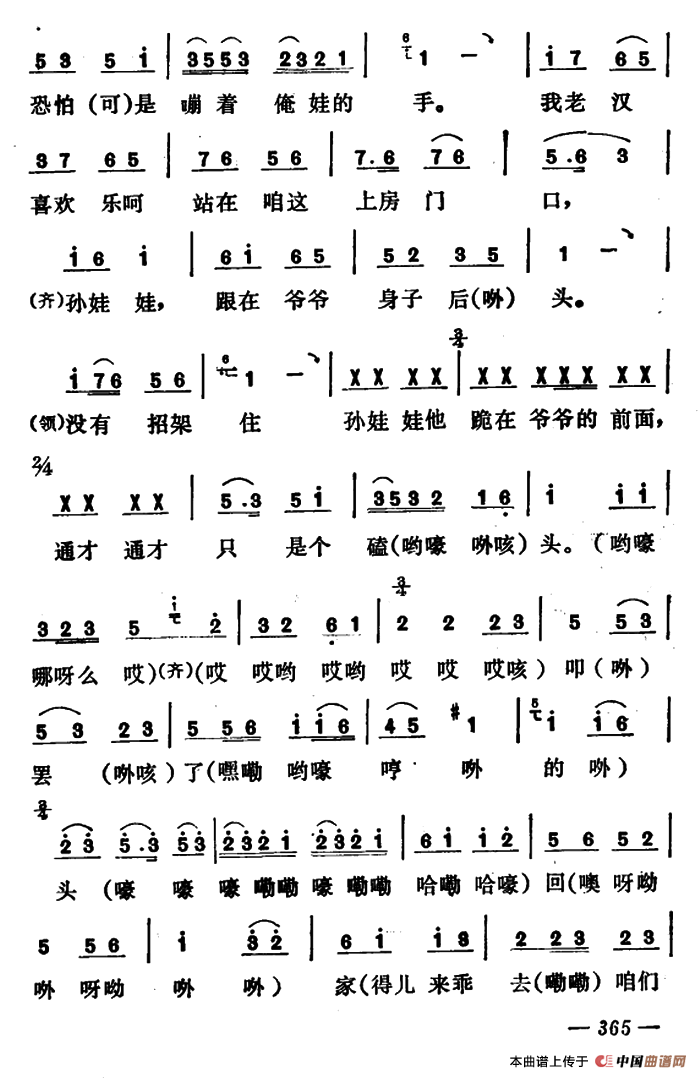 5 3 5 i | 3553 2321 | 1 — | i 7 6 5
恐怕(可)是 嘣着 俺娃的 手。 我老汉
3 7 6 5 | 7 6 5 6 | 7. 6 7 6 | 5 . 6 3
喜欢 乐呵 站在 咱这 上房 门 口，
i 6 i | 6 i 6 5 | 5 2 3 5 | i —
(齐)孙娃 娃， 跟在 爷爷 身子 后(哟) 头。
i 7 6 5 6 | 1 — | X X X X | X X X X X X X |
(领)没有 招架 住 孙娃 娃他 跪在 爷爷的 前面，
2/4
X X X X | 5 . 3 5 i | 3532 1 6 | i i i
通才 通才 只 是个 磕(哟嚎 咳) 头。(哟嚎
3/4
3 2 3 5 2 | 3 2 6 1 | 2 2 2 3 | 5 5 3
哪呀么 哎)(齐)(哎 哎哟 哎哟 哎 哎 哎咳) 叩( )
5 3 2 3 | 5 5 6 i i 6 | 4 5 #1 | i i 6
罢 (咳) 了(嘿嘞 哟嚎 哼 的 )
3/4
2 3 5 . 3 5 3 | 2321 2321 | 6 i i 2 | 5 6 5 2
头 (嚎 嚎 嚎 嘞嘞 嚎 嘞嘞 哈嘞 哈嚎) 回(噢 呀呦
5 5 6 | i 3 2 | 6 i i 3 | 2 2 3 2 3
呀呦 ) 家(得儿 来乖 去(嘞嘞) 咱们
— 365 —
本曲谱上传于 中国曲谱网